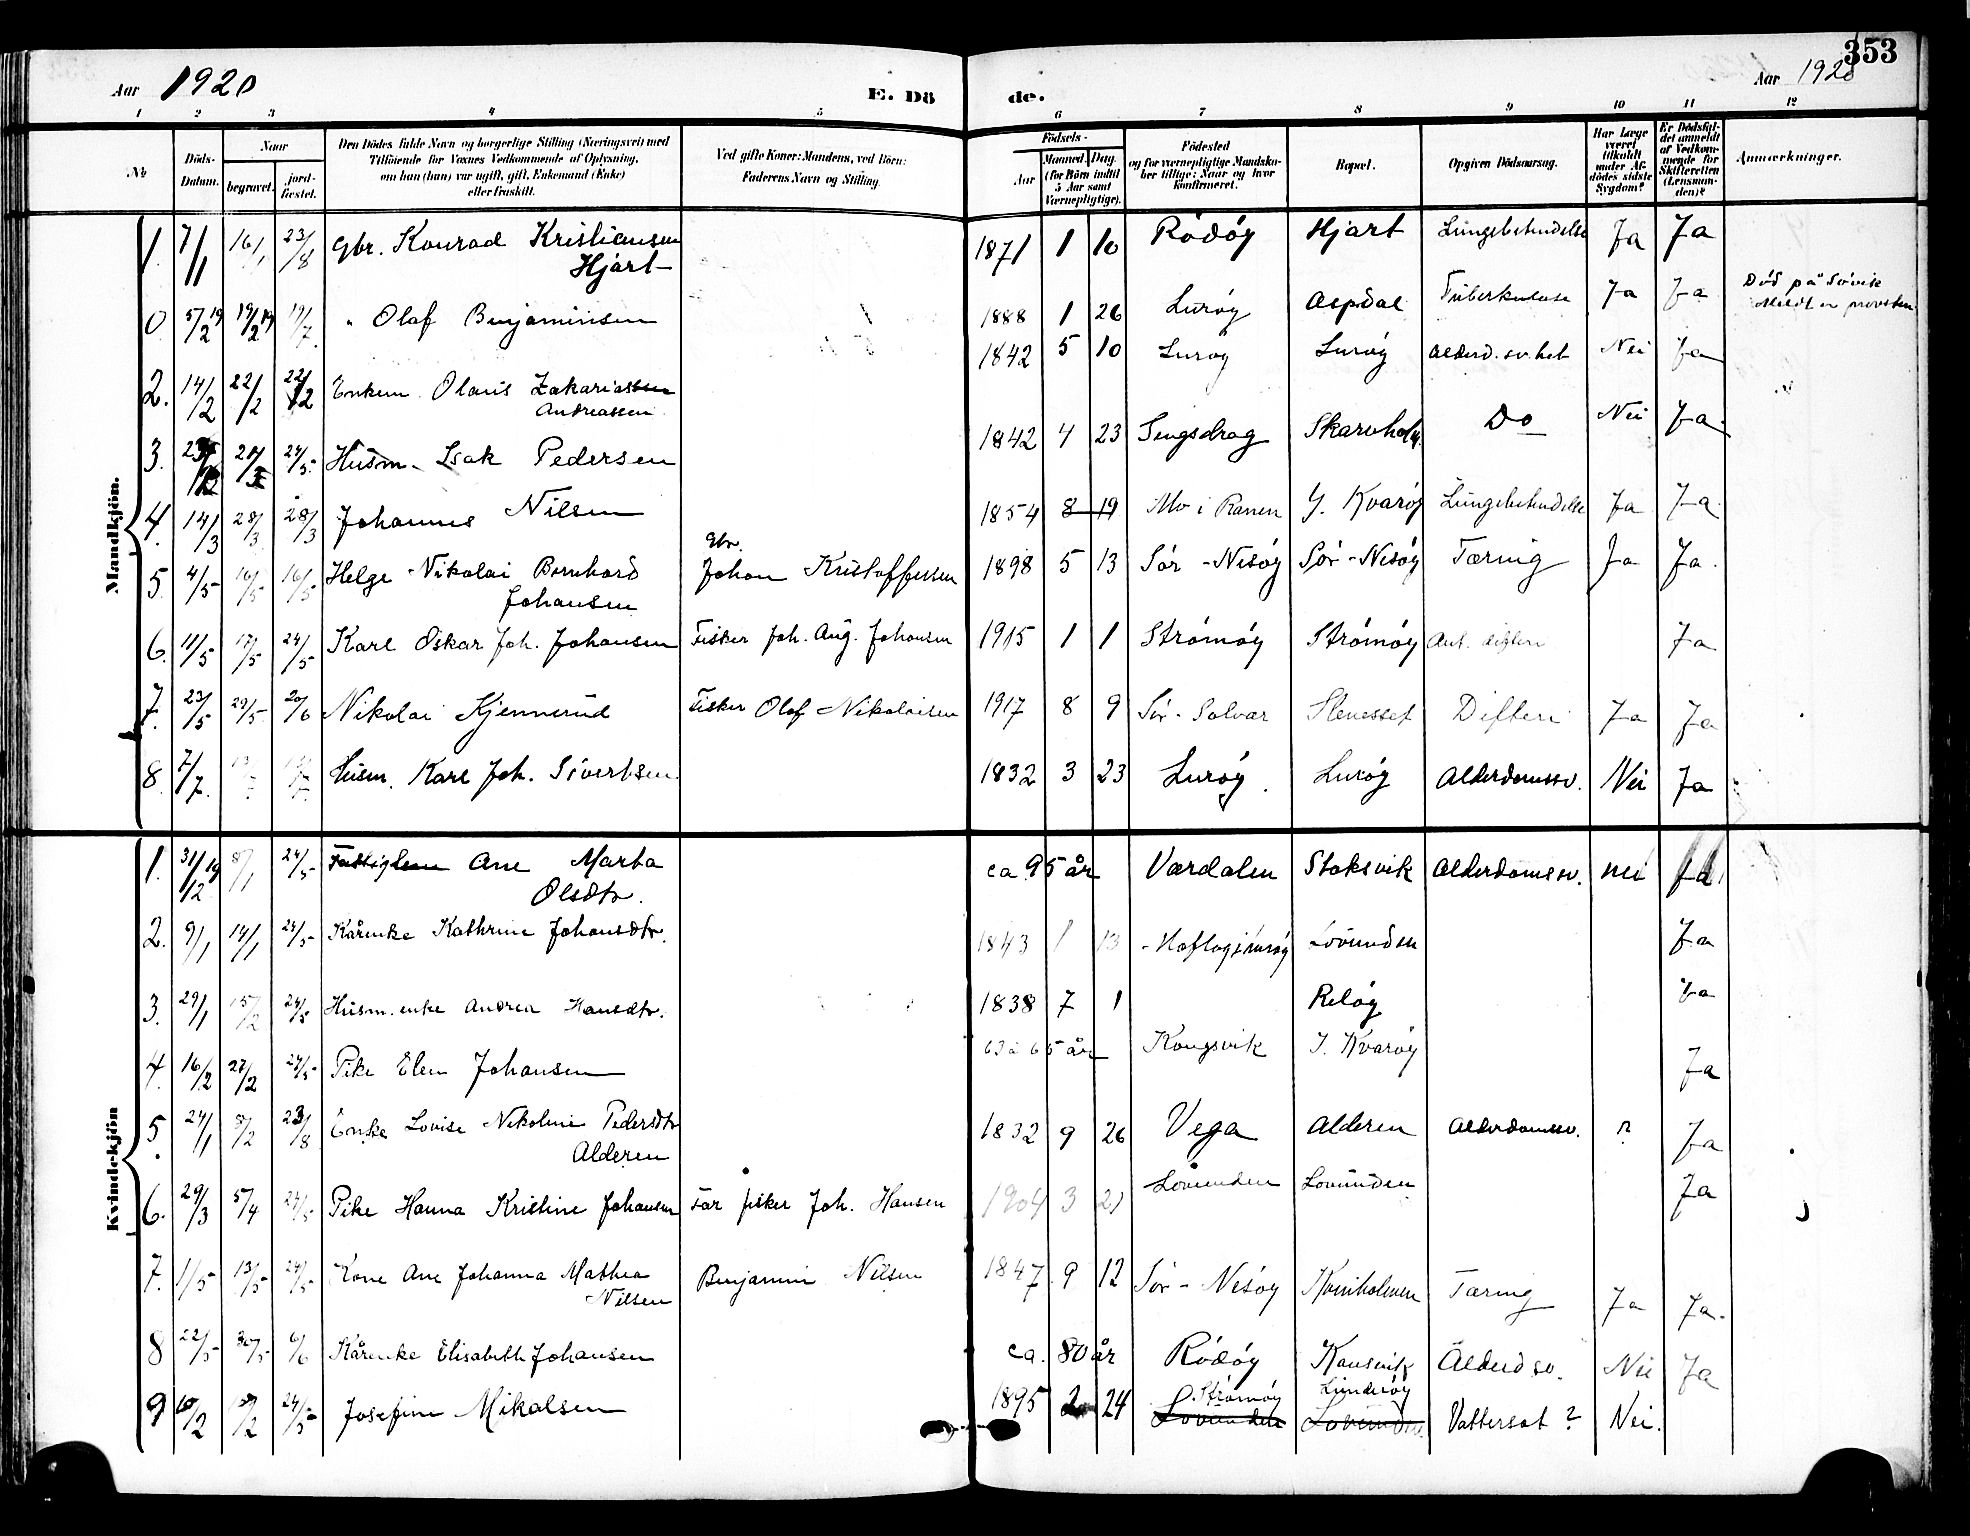 353
Aar 1920
E. Dö
de.
Aar 1920
1 2 3 4 5 6 7 8 9 10 11 12
№
Döds-Datum.
Naar
begravet.
jord-fæstet.
Den Dödes fulde Navn og borgerlige Stilling (Næringsvei) med
Tilföiende for Voxnes Vedkommende af Oplysning,
om han (hun) var ugift, gift, Enkemand (Enke)
eller fraskilt.
Ved gifte Koner: Mandens, ved Börn:
Faderens Navn og Stilling.
Födsels-
Aar
Maaned. Dag.
(for Börn indtil
5 Aar samt
Værnepligtige).
Födested
og for værnepligtige Mandsko-
ber tillige: Naar og hvor
konfirmeret.
Bopæl.
Opgiven Dödsaarsag.
Har Læge
været
tilkaldt
under Af-
dödes sidste
Sygdom?
Er Dödsfal-
det anmeldt
af Vedkom-
mende for
Skifteretten
(Lensman-
den)?
Anmærkninger.
Mandkjön.
1. 7/1 16/1 23/8 Gbr. Konrad Kristiansen Hjart 1871 1 10 Rödöy Hjart Lungebetendelse Ja Ja
0 5/2 19 19/2 19 19/7 " Olaf Benjaminsen 1888 1 26 Luröy Aspdal Tuberkulose Ja Ja Död på Sövik
Meldt er provsten
2. 14/2 22/2 22/2 Enkem. Olaus Zakariassen Andreassen 1842 5 10 Luröy Luröy Alderd.sv.het Nei Ja
3. 24/5 Husm. Isak Pedersen 1842 4 23 Sengsdrag Skarvholm. Do Nei Ja.
4. 14/3 28/3 28/3 Johannes Nilsen 1854 8 19 Mo i Ranen Y. Kvaröy Lungebetendelse Ja Ja.
5. 4/5 16/5 16/5 Helge Nikolai Bernhard Johansen Gbr. Johan Kristoffersen 1898 5 13 Sör-Nesöy Sör-Nesöy Tæring Ja Ja.
6. 11/5 17/5 24/5 Karl Oskar Joh. Johansen Fisker Joh. Aug. Johansen 1915 1 1 Strömöy Strömöy Ant. difteri Ja
7. 23/5 29/5 20/6 Nikolai Kjennerud Fisker Olaf Nikolaisen 1917 8 9 Sör-Solvær Stenesset Difteri Ja Ja
8. 7/7. Husm. Karl Joh. Sivertsen. 1832 3 23 Luröy Luröy Alderdomssv. Nei Ja
Kvindekjön
1. 31/12 19 8/1 24/5 Fattiglem Ane Marta Olsdtr. ca. 95 år Værdalen Stoksvik Alderdomssv. nei Ja
2. 9/1 14/1 24/5 Kårenke Kathrine Johansdtr. 1843 1 13 Lovunden Ja
3. 29/1 15/2 24/5 Husm.enke Andrea Hansdtr. 1838 7 1 Relöy Ja
4. 16/2 27/2 24/5 Pike Elen Johansen 63 à 65 år Kongsvik I. Kvaröy Ja
5. 24/1 8/2 23/8 Enke Lovise Nikoline Pedersdtr Alderen 1832 9 26 Vega Alderen Alderdomssv. ? Ja
6. 29/3 5/4 24/5 Pike Hanna Kristine Johansen Far fisker Joh. Hansen 1904 3 21 Lovunden Lovunden Ja
7. 1/5 13/5 24/5 Kone Ane Johanna Mathea Nilsen Benjamin Nilsen 1847 9 12 Sör-Nesöy Kvinholmen Tæring Ja Ja.
8 22/5 30/5 6/6 Kårenke Elisabeth Johansen ca. 80 år Rödöy Kansvik Alderd sv. Nei Ja
9 10/2 24/5 Josefine Mikalsen 1895 2 24 Strömöy Lovunden Lunderöy Lovunden Vattersot? Nei.